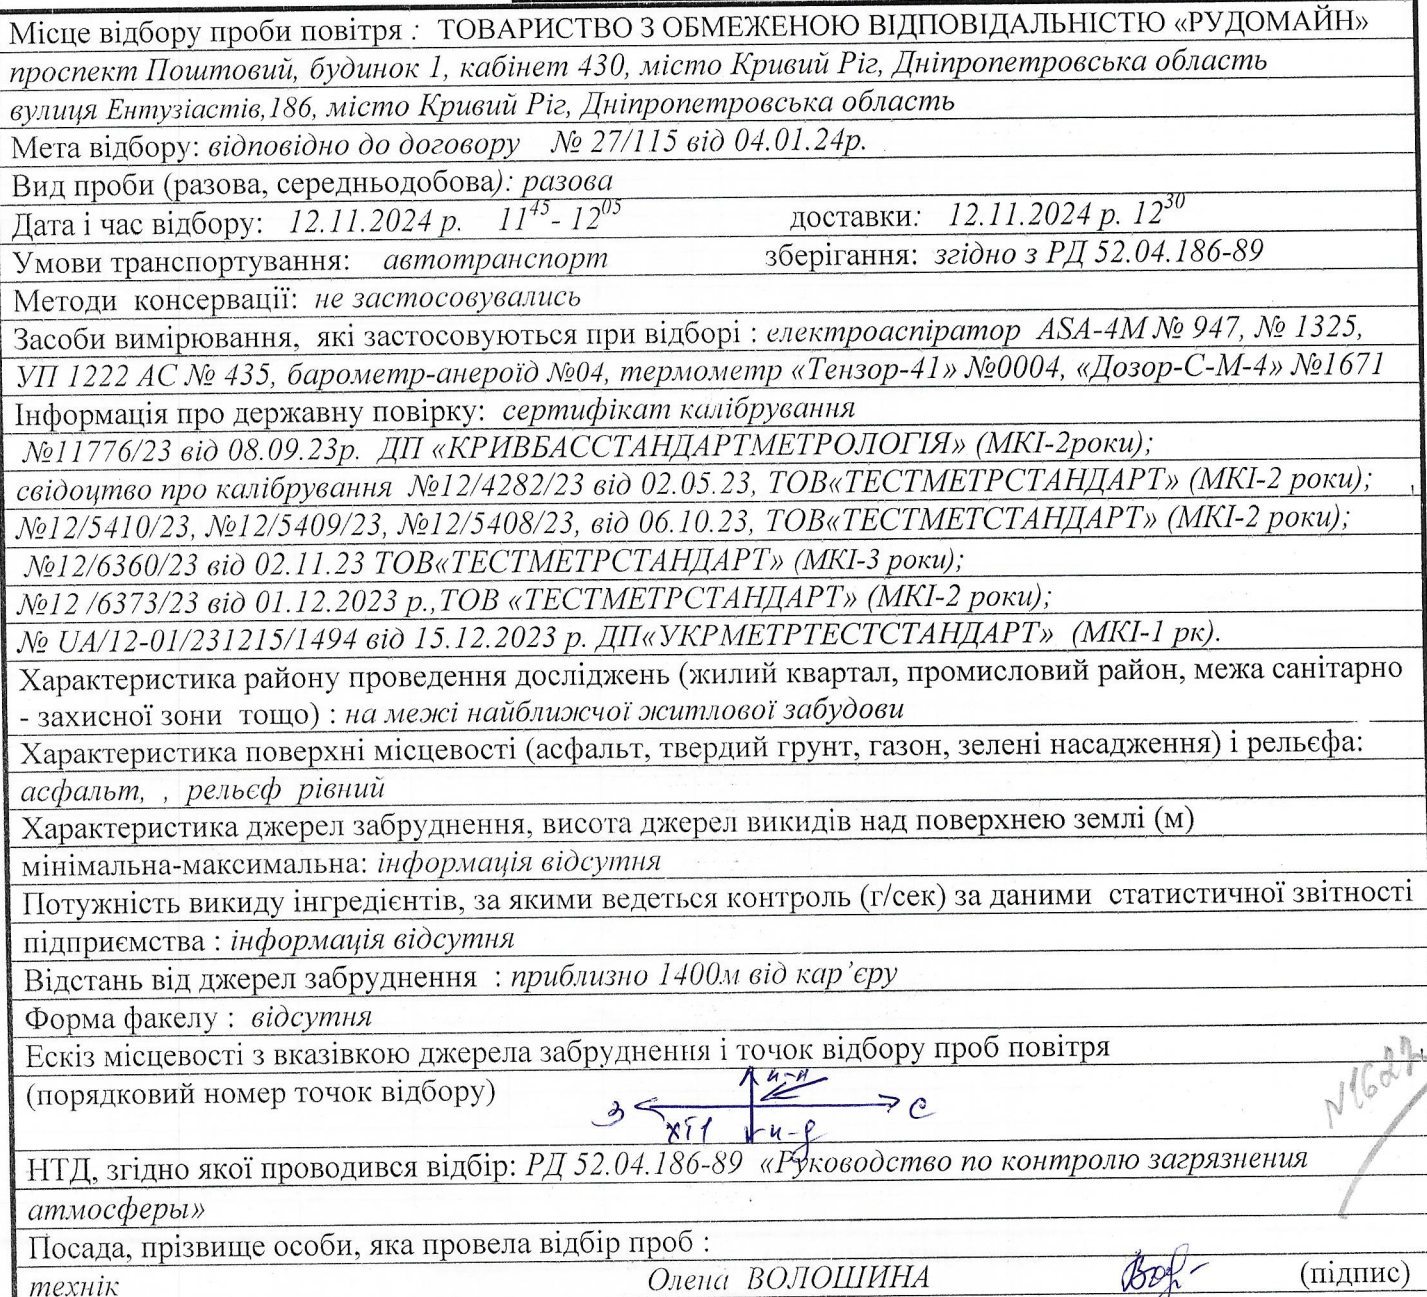 Місце відбору проби повітря : ТОВАРИСТВО З ОБМЕЖЕНОЮ ВІДПОВІДАЛЬНІСТЮ «РУДОМАЙН»
проспект Поштовий, будинок 1, кабінет 430, місто Кривий Ріг, Дніпропетровська область
вулиця Ентузіастів,186, місто Кривий Ріг, Дніпропетровська область
Мета відбору: відповідно до договору № 27/115 від 04.01.24р.
Вид проби (разова, середньодобова): разова
Дата і час відбору: 12.11.2024 р. 11⁴⁵- 12⁰⁵ доставки: 12.11.2024 р. 12³⁰
Умови транспортування: автотранспорт зберігання: згідно з РД 52.04.186-89
Методи консервації: не застосовувались
Засоби вимірювання, які застосовуються при відборі : електроаспіратор ASA-4M № 947, № 1325,
УП 1222 АС № 435, барометр-анероїд №04, термометр «Тензор-41» №0004, «Дозор-С-М-4» №1671
Інформація про державну повірку: сертифікат калібрування
№11776/23 від 08.09.23р. ДП «КРИВБАССТАНДАРТМЕТРОЛОГІЯ» (МКІ-2роки);
свідоцтво про калібрування №12/4282/23 від 02.05.23, ТОВ«ТЕСТМЕТРСТАНДАРТ» (МКІ-2 роки);
№12/5410/23, №12/5409/23, №12/5408/23, від 06.10.23, ТОВ«ТЕСТМЕТСТАНДАРТ» (МКІ-2 роки);
№12/6360/23 від 02.11.23 ТОВ«ТЕСТМЕТРСТАНДАРТ» (МКІ-3 роки);
№12 /6373/23 від 01.12.2023 р.,ТОВ «ТЕСТМЕТРСТАНДАРТ» (МКІ-2 роки);
№ UA/12-01/231215/1494 від 15.12.2023 р. ДП«УКРМЕТРТЕСТСТАНДАРТ» (МКІ-1 рк).
Характеристика району проведення досліджень (жилий квартал, промисловий район, межа санітарно
- захисної зони тощо) : на межі найближчої житлової забудови
Характеристика поверхні місцевості (асфальт, твердий грунт, газон, зелені насадження) і рельєфа:
асфальт, , рельєф рівний
Характеристика джерел забруднення, висота джерел викидів над поверхнею землі (м)
мінімальна-максимальна: інформація відсутня
Потужність викиду інгредієнтів, за якими ведеться контроль (г/сек) за даними статистичної звітності
підприємства : інформація відсутня
Відстань від джерел забруднення : приблизно 1400м від кар’єру
Форма факелу : відсутня
Ескіз місцевості з вказівкою джерела забруднення і точок відбору проб повітря
(порядковий номер точок відбору)
З хТ1 С
№1627
НТД, згідно якої проводився відбір: РД 52.04.186-89 «Руководство по контролю загрязнения
атмосферы»
Посада, прізвище особи, яка провела відбір проб :
технік Олена ВОЛОШИНА (підпис)